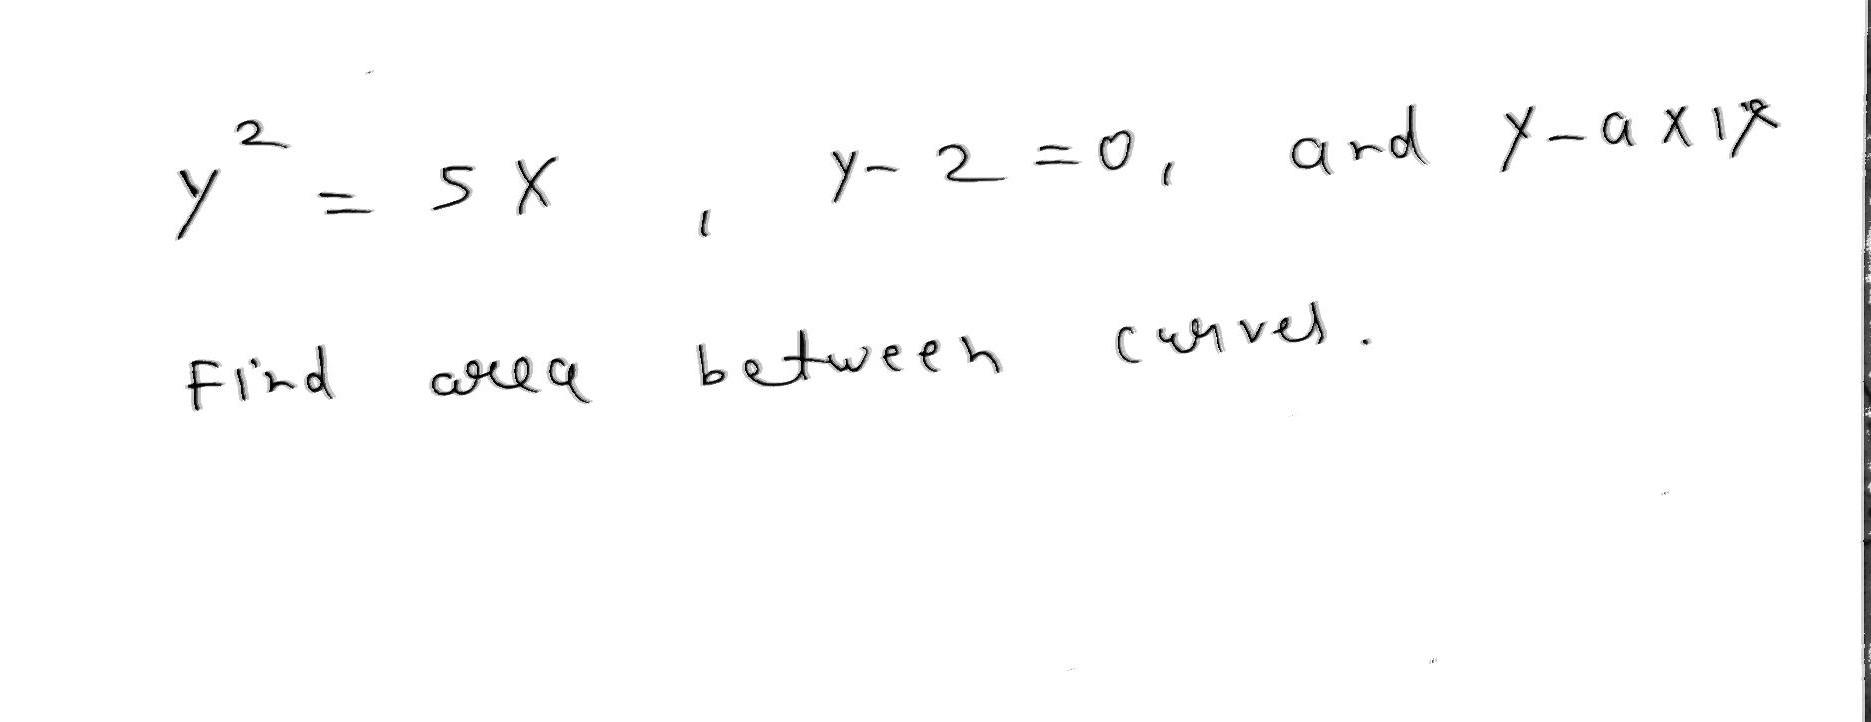 y² = 5x , y-2=0, and y-axis
Find area between curves.